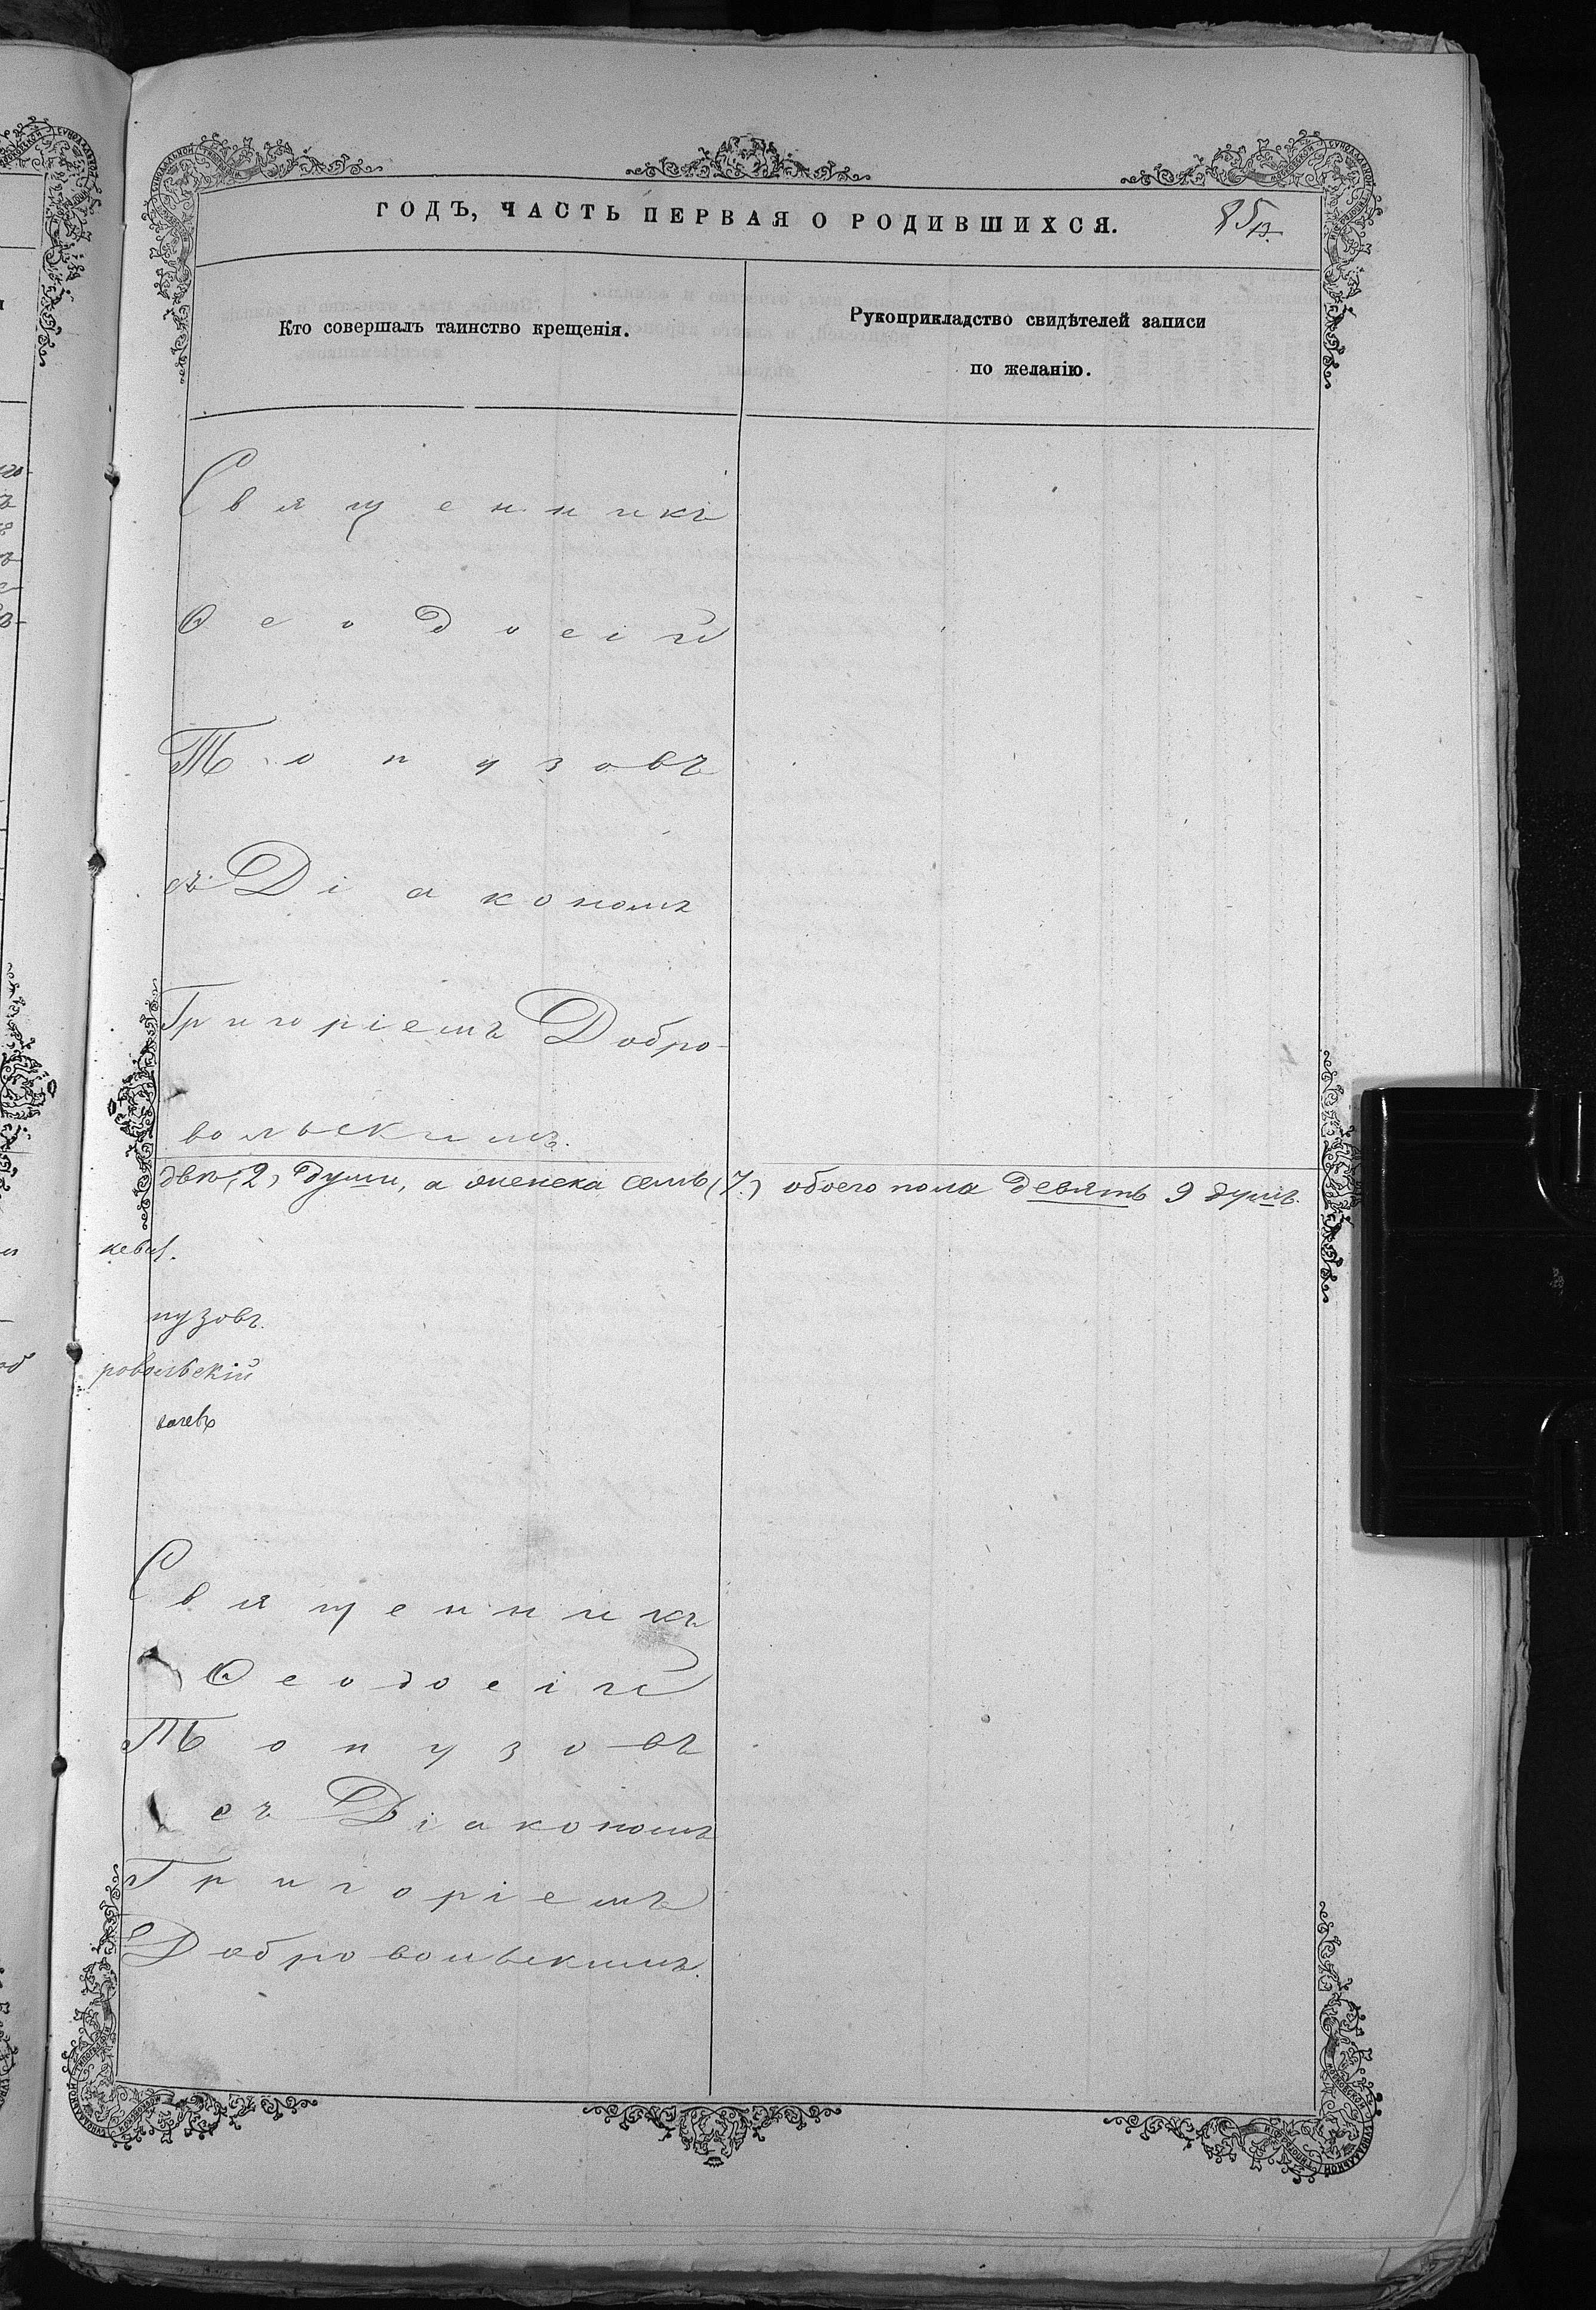 ГОДЪ, ЧАСТЬ ПЕРВАЯ О РОДИВШИХСЯ.
Кто совершалъ таинство крещенія.
Рукоприкладство свидѣтелей записи
по желанію.
Священникъ
Ѳеодосій
Топузовъ
съ Діакономъ
Григоріемъ Добро-
вольскимъ.
двѣ (2) души, а женска семь (7) обоего пола девять 9 душъ.
пузовъ.
ровольскій
Священникъ
Ѳеодосій
Топузовъ
съ Діакономъ
Григоріемъ
Добровольскимъ.